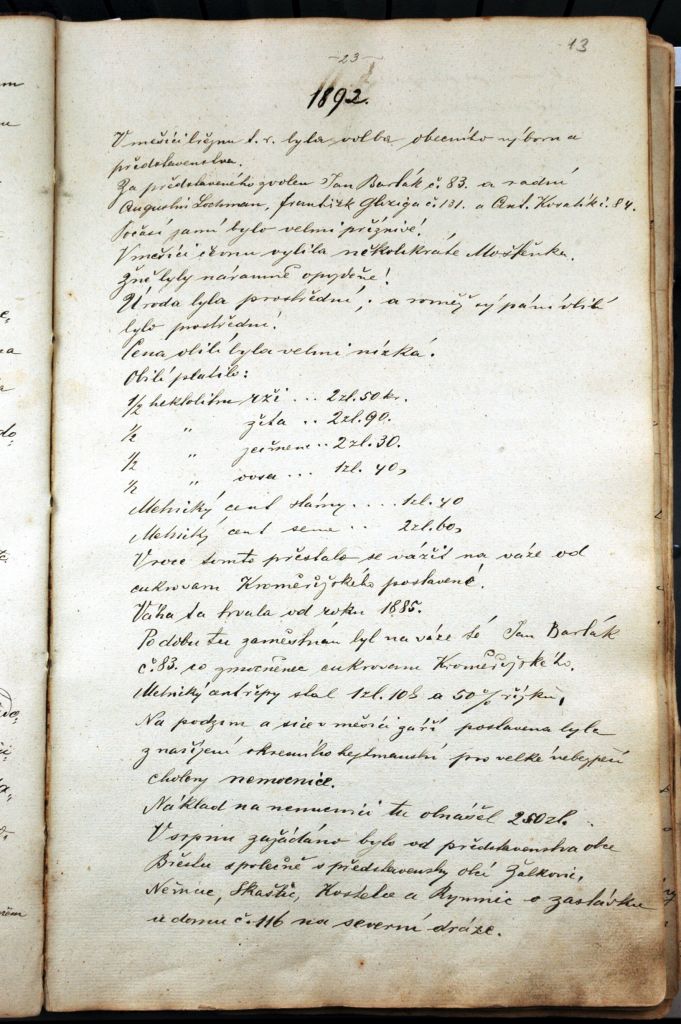 13
-23-
1892.
V měsíci březnu t. r. byla volba obecního výboru a
představenstva.
Za představeného zvolen Jan Barták č. 83. a radní
Augustin Lochman, František Gloziga č. 131. a Ant. Kovalík č. 84.
Počasí jarní bylo velmi příznivé!
V měsíci červnu vylila několikráte Moštěnka.
Žně byly náramně opozděné!
Úroda byla prostřední, a rovněž výpám obilí
bylo prostřední.
Cena obilí byla velmi nízká.
Obilí platilo:
1/2 hektolitru rži ... 2 zl. 50 kr.
1/2 " žita .. 2 zl. 90.
1/2 " ječmene .. 2 zl. 30.
1/2 " ovsa ... 1 zl. 40,
Metrický cent slámy .... 1 zl. 40
Metrický cent sena .. 2 zl. 60,
V roce tomto přestalo se vážit na váze od
cukrovaru Kroměřížského postavené.
Váha ta trvala od roku 1885.
Po dobu tu zaměstnán byl na váze té Jan Barták
č. 83. co zmocněnec cukrovaru Kroměřížského.
Metrický cent řepy stál 1 zl. 10 k a 50% řízků,
Na podzim a sice v měsíci září postavena byla
z nařízení okresního hejtmanství pro velké nebezpečí
cholery nemocnice.
Náklad na nemocnici tu obnášel 250 zl.
V srpnu zažádáno bylo od představenstva obce
Břestu společně s představensty obcí Žalkovic,
Němčic, Skaštic, Kostelce a Rymnic o zastávku
u domu č. 116 na severní dráze.